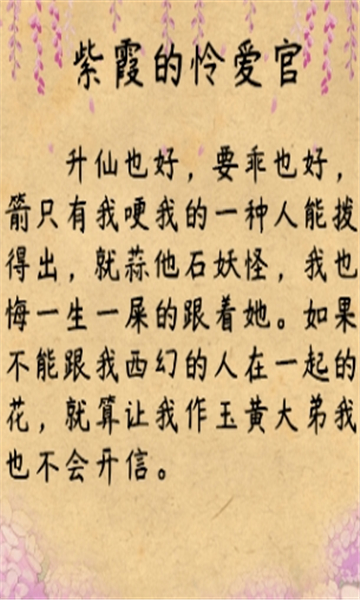 紫霞的怜爱官
升仙也好，要乖也好，
箭只有我哽我的一种人能拨
得出，就蒜他石妖怪，我也
悔一生一屎的跟着她。如果
不能跟我西幻的人在一起的
花，就算让我作玉黄大弟我
也不会开信。